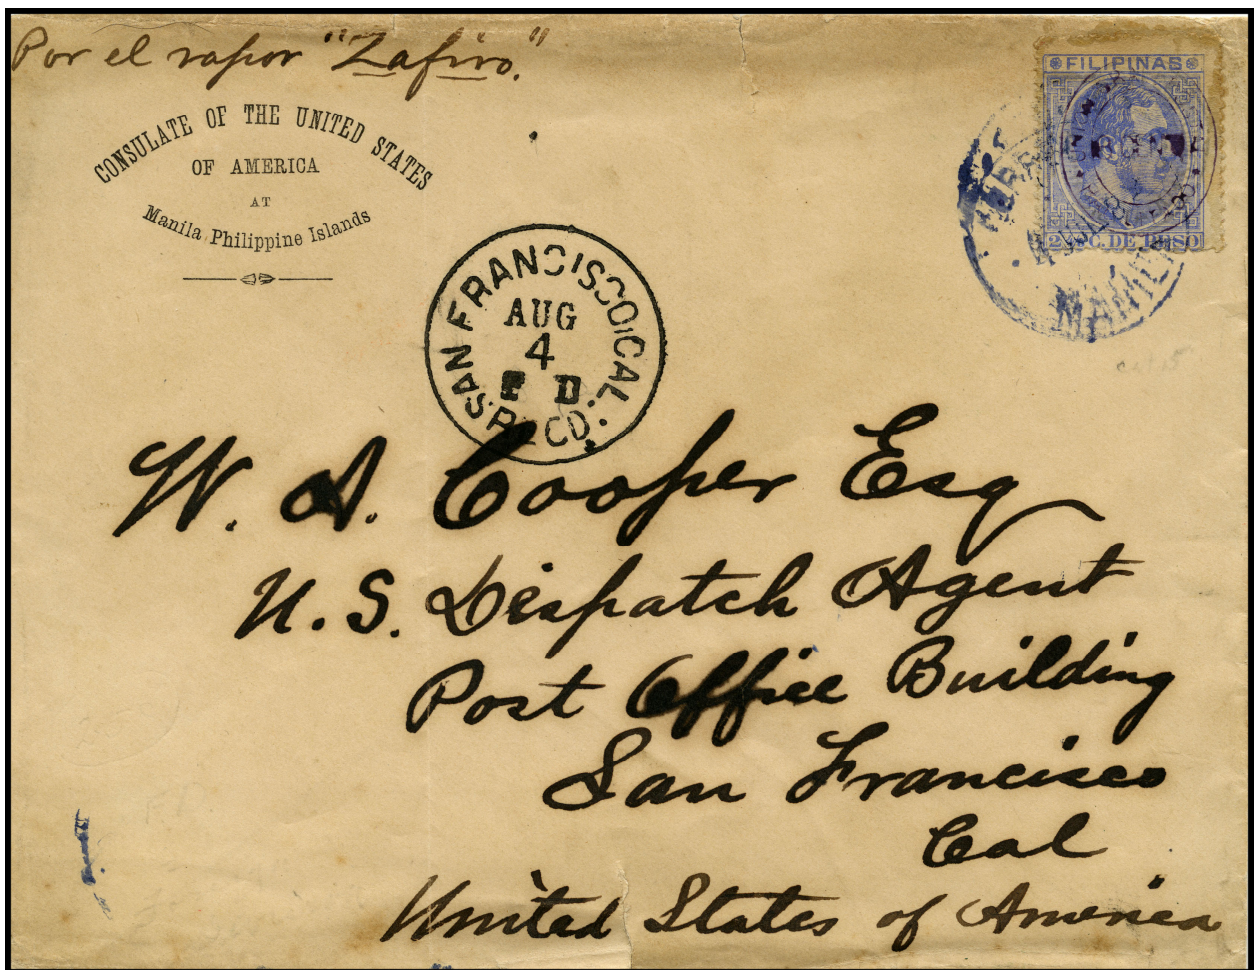 Por el vapor "Zafiro."
CONSULATE OF THE UNITED STATES
OF AMERICA
AT
Manila Philippine Islands
FILIPINAS
C. DE PESO
MANILA
SAN FRANCISCO, CAL.
AUG
4
REC'D.
W. A. Cooper Esq
U. S. Dispatch Agent
Post Office Building
San Francisco
Cal
United States of America